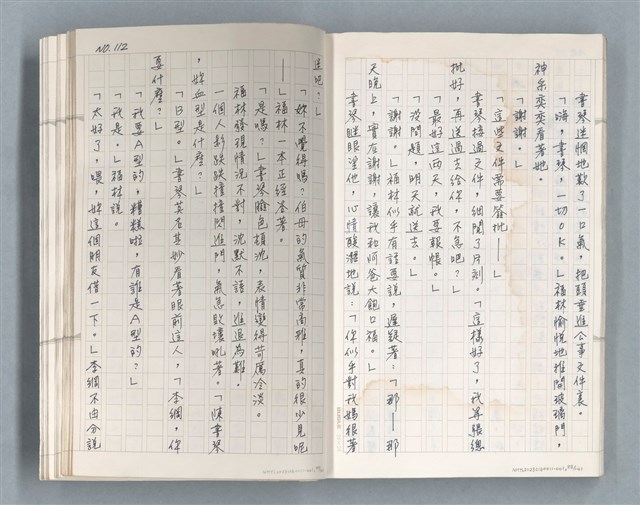 書琴迷惘地歎了一口氣，把頭重進公事文件裏。
「嗨，書琴，一切OK。」福林愉悅地推開玻璃門，
神采奕奕看著她。
「謝謝。」
「這些文件需要簽批——」
書琴接過文件，細閱了片刻。「這樣好了，我尋張總
批好，再送過去給你，不急吧？」
「最好這兩天，我要報帳。」
「沒問題，明天就送去。」
「謝謝。」福林似乎有話要說，遲疑著：「那——那
天晚上，實在謝謝讓我和阿爸大飽口福。」
書琴瞇眼望他，心情酸澀地說：「你似乎對我媽很著
迷吧？」
「妳不覺得嗎？伯母的氣質非常高雅，真的很少見呢
——」福林一本正經答著。
「是嗎？」書琴臉色頓沈，表情變得苛厲冷淡。
福林發現情況不對，沈默不語，進退為難。
一個人影跌跌撞撞閃進門，氣急敗壞吼著。「陳書琴
，妳血型是什麼？」
「B型。」書琴莫名其妙看著眼前這人，「李綱，你
要什麼？」
「我要A型的，糟糕啦，有誰是A型的？」
「我是。」福林說。
「太好了，喂，妳這個朋友借一下。」李綱不由分說
NO. 112